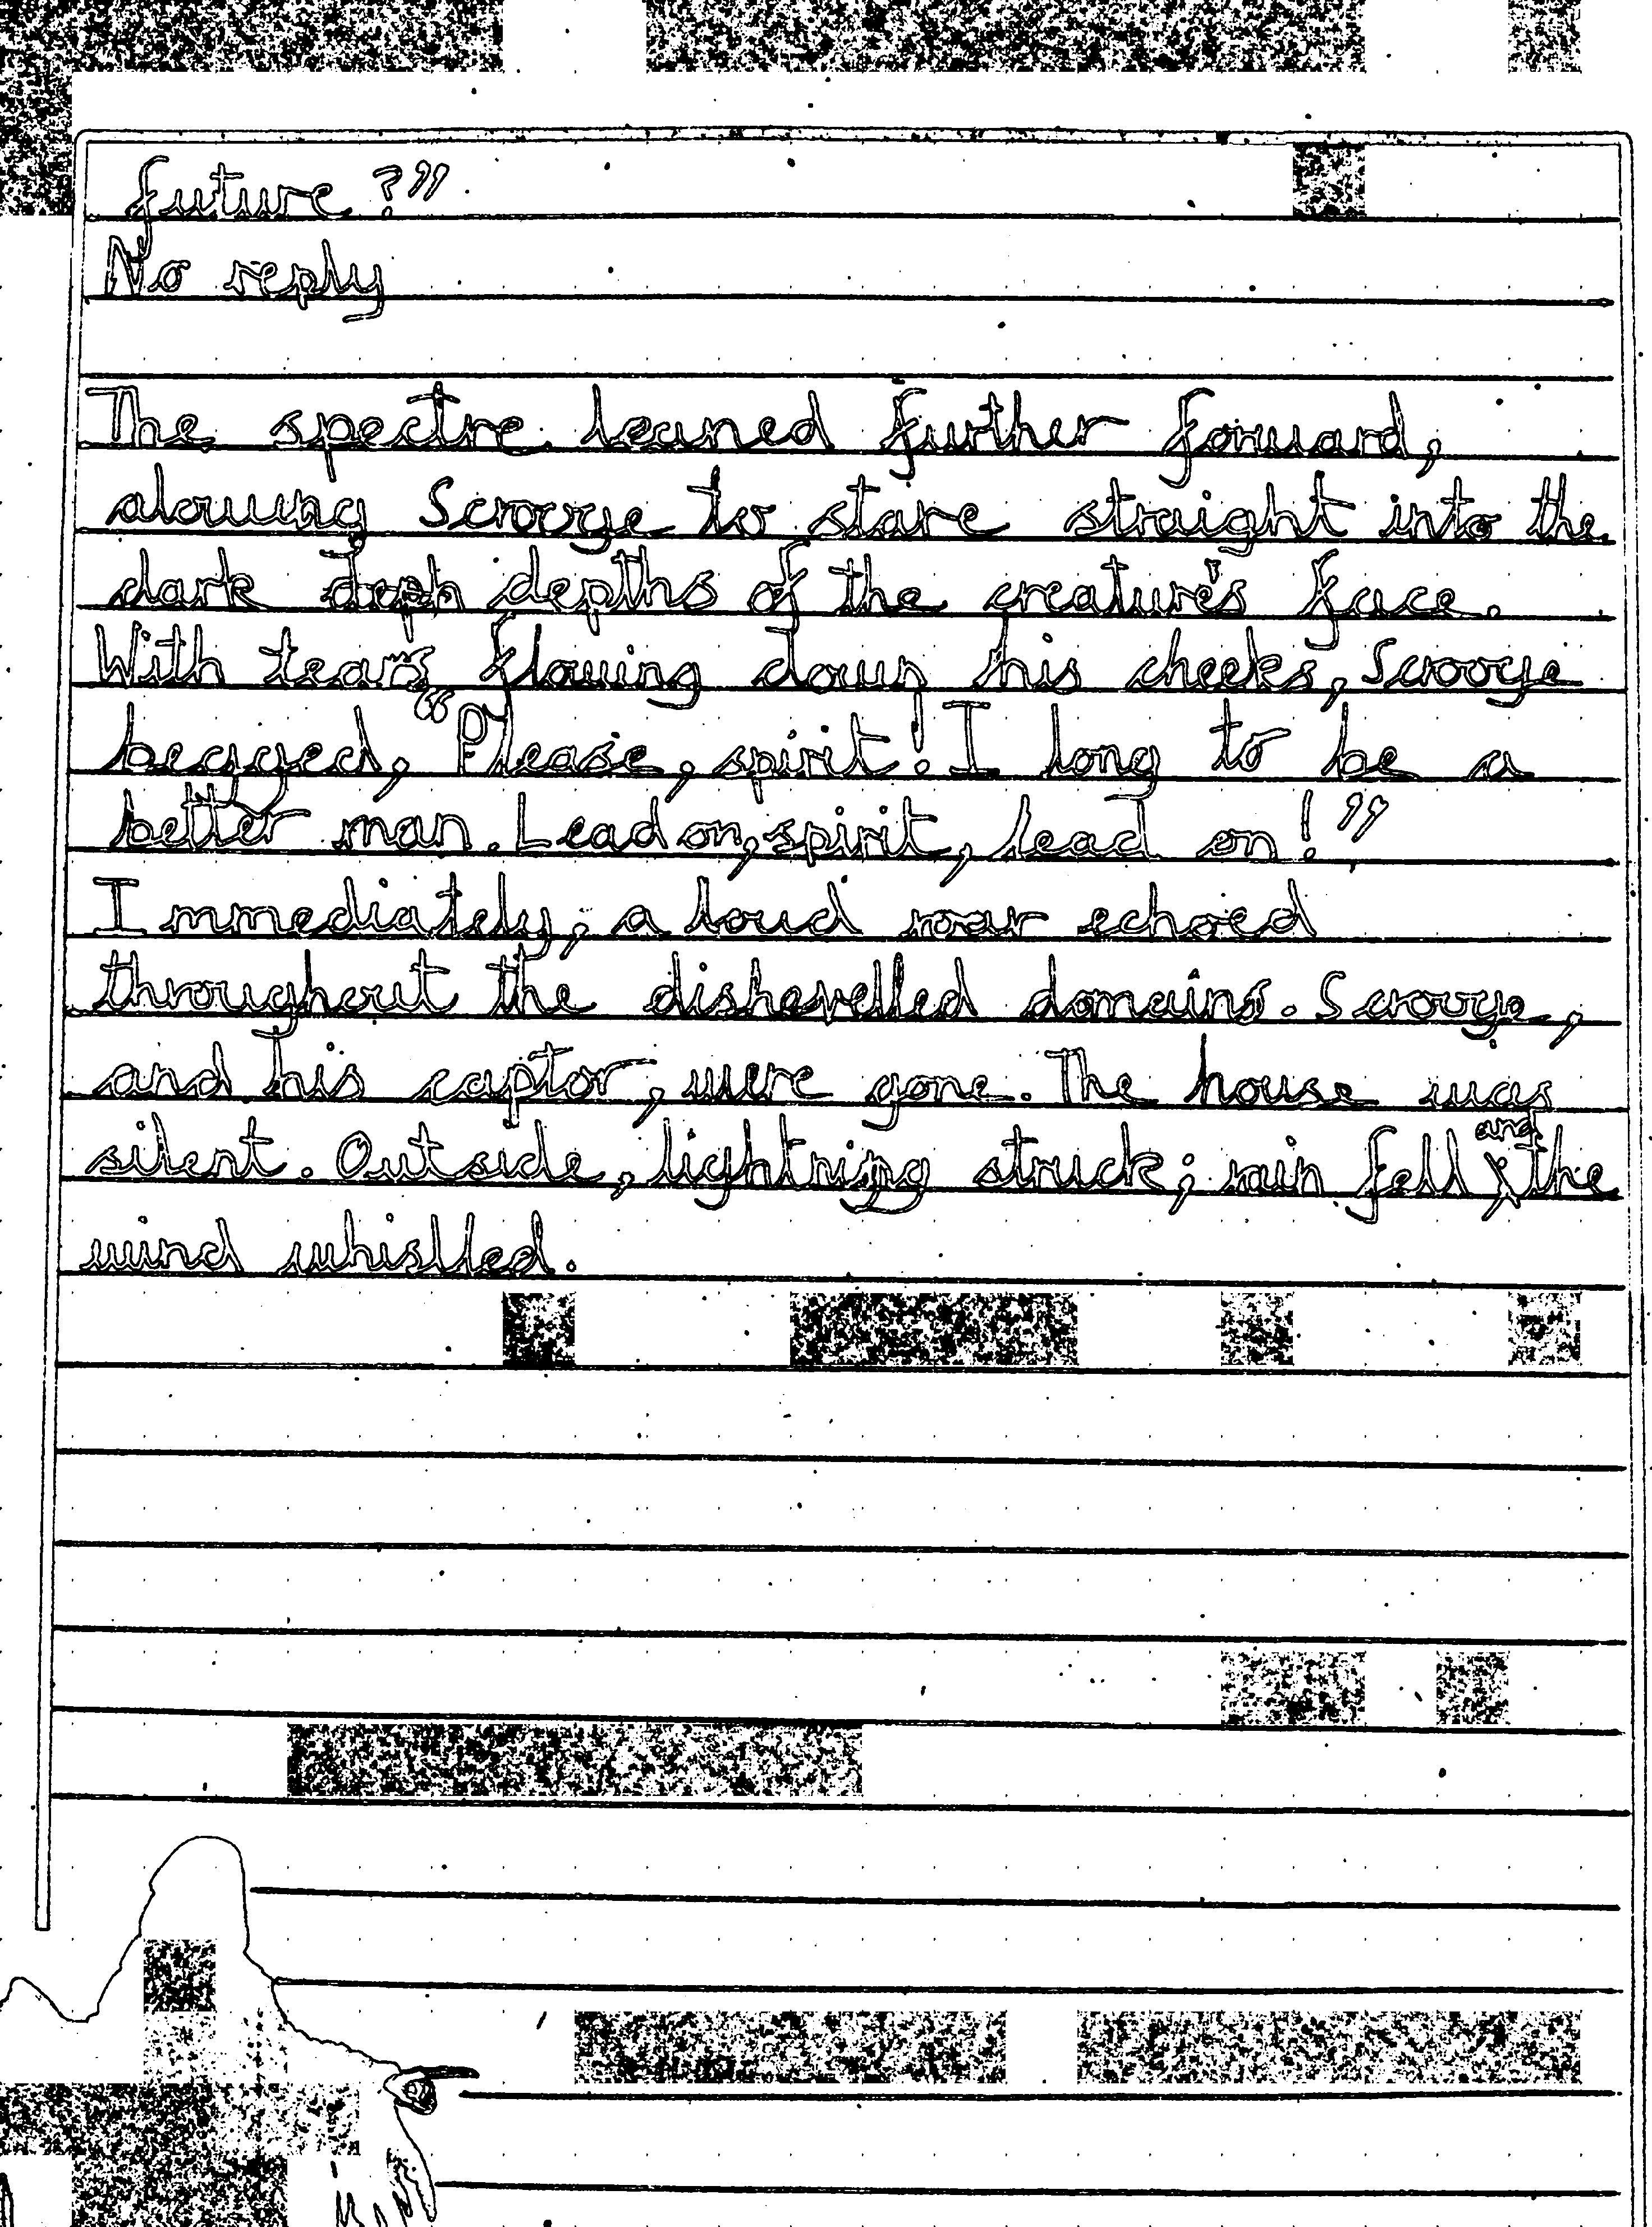 future?”
No reply
The spectre leaned further forward,
alowing Scrooge to stare straight into the
dark depths of the creature's face.
With tears flowing down his cheeks, Scrooge
begged, “Please, spirit! I long to be a
better man. Lead on, spirit, lead on!”
Immediately, a loud roar echoed
throughout the dishevelled domains. Scrooge,
and his captor, were gone. The house was
silent. Outside, lightning struck; rain fell and the
wind whistled.